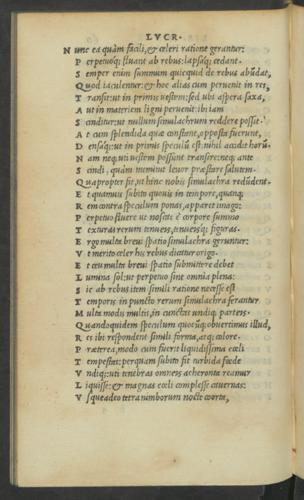 LVCR.
N unc ea quàm facili, & celeri ratione gerantur:
P erpetuoq; fluant ab rebus: lapsaq; cedant.
S emper enim summum quicquid de rebus abũdat,
Q uod iaculentur: & hoc alias cum peruenit in res,
T ransit: ut in primis uestem: sed ubi aspera saxa,
A ut in materiem ligni peruenit: ibi iam
S cinditur: ut nullum simulachrum reddere possit.
A t cum splendida quæ constant, opposta fuerunt,
D ensaq; ut in primis speculũ est. nihil accidit horũ
N am neq; uti uestem possunt transire: neq; ante
S cindi, quàm meminit leuor præstare salutem.
Q uapropter fit, ut hinc nobis simulachra redũdent.
E t quamuis subito quouis in tempore, quanq;
R em contra speculum ponas, apparet imago:
P erpetuo fluere ut noscas è corpore summo
T exturas rerum tenues, tenueisq; figuras.
E rgo multa breui spatio simulachra geruntur:
V t merito celer his rebus dicatur origo.
E t ceu multa breui spatio submittere debet
L umina sol: ut perpetuo sint omnia plena:
S ic ab rebus item simili ratione necesse est
T emporis in puncto rerum simulachra ferantur
M ulta modis multis, in cunctas undiq; parteis.
Q uandoquidem speculum quocũq; obuertimus illud,
R es ibi respondent simili forma, atq; colore.
P ræterea, modo cum fuerit liquidissima cœli
T empestas: perquàm subito fit turbida fœde
V ndiq;: uti tenebras omneis acheronta rearis
L iquisse: & magnas cœli complesse cauernas:
V sque adeo tetra nimborum nocte coorta,